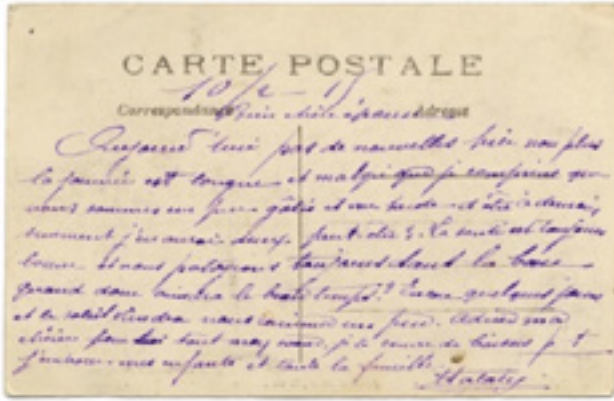 CARTE POSTALE
10/2 - 15
Correspondance Adresse
Bien chère épouse
Aujourd'hui pas de nouvelles hier non plus
la journée est longue et malgré que je comprens que
nous sommes un peu gâtés et
moment j'en aurai deux peut-être 3. La santé est toujours
bonne et nous pataugeons toujours dans la boue
quand donc viendra le beau temps? Encore quelques jours
et le soleil viendra nous un peu. Adieu ma
chérie tout mon je te couvre de baisers
mes enfants et toute la famille